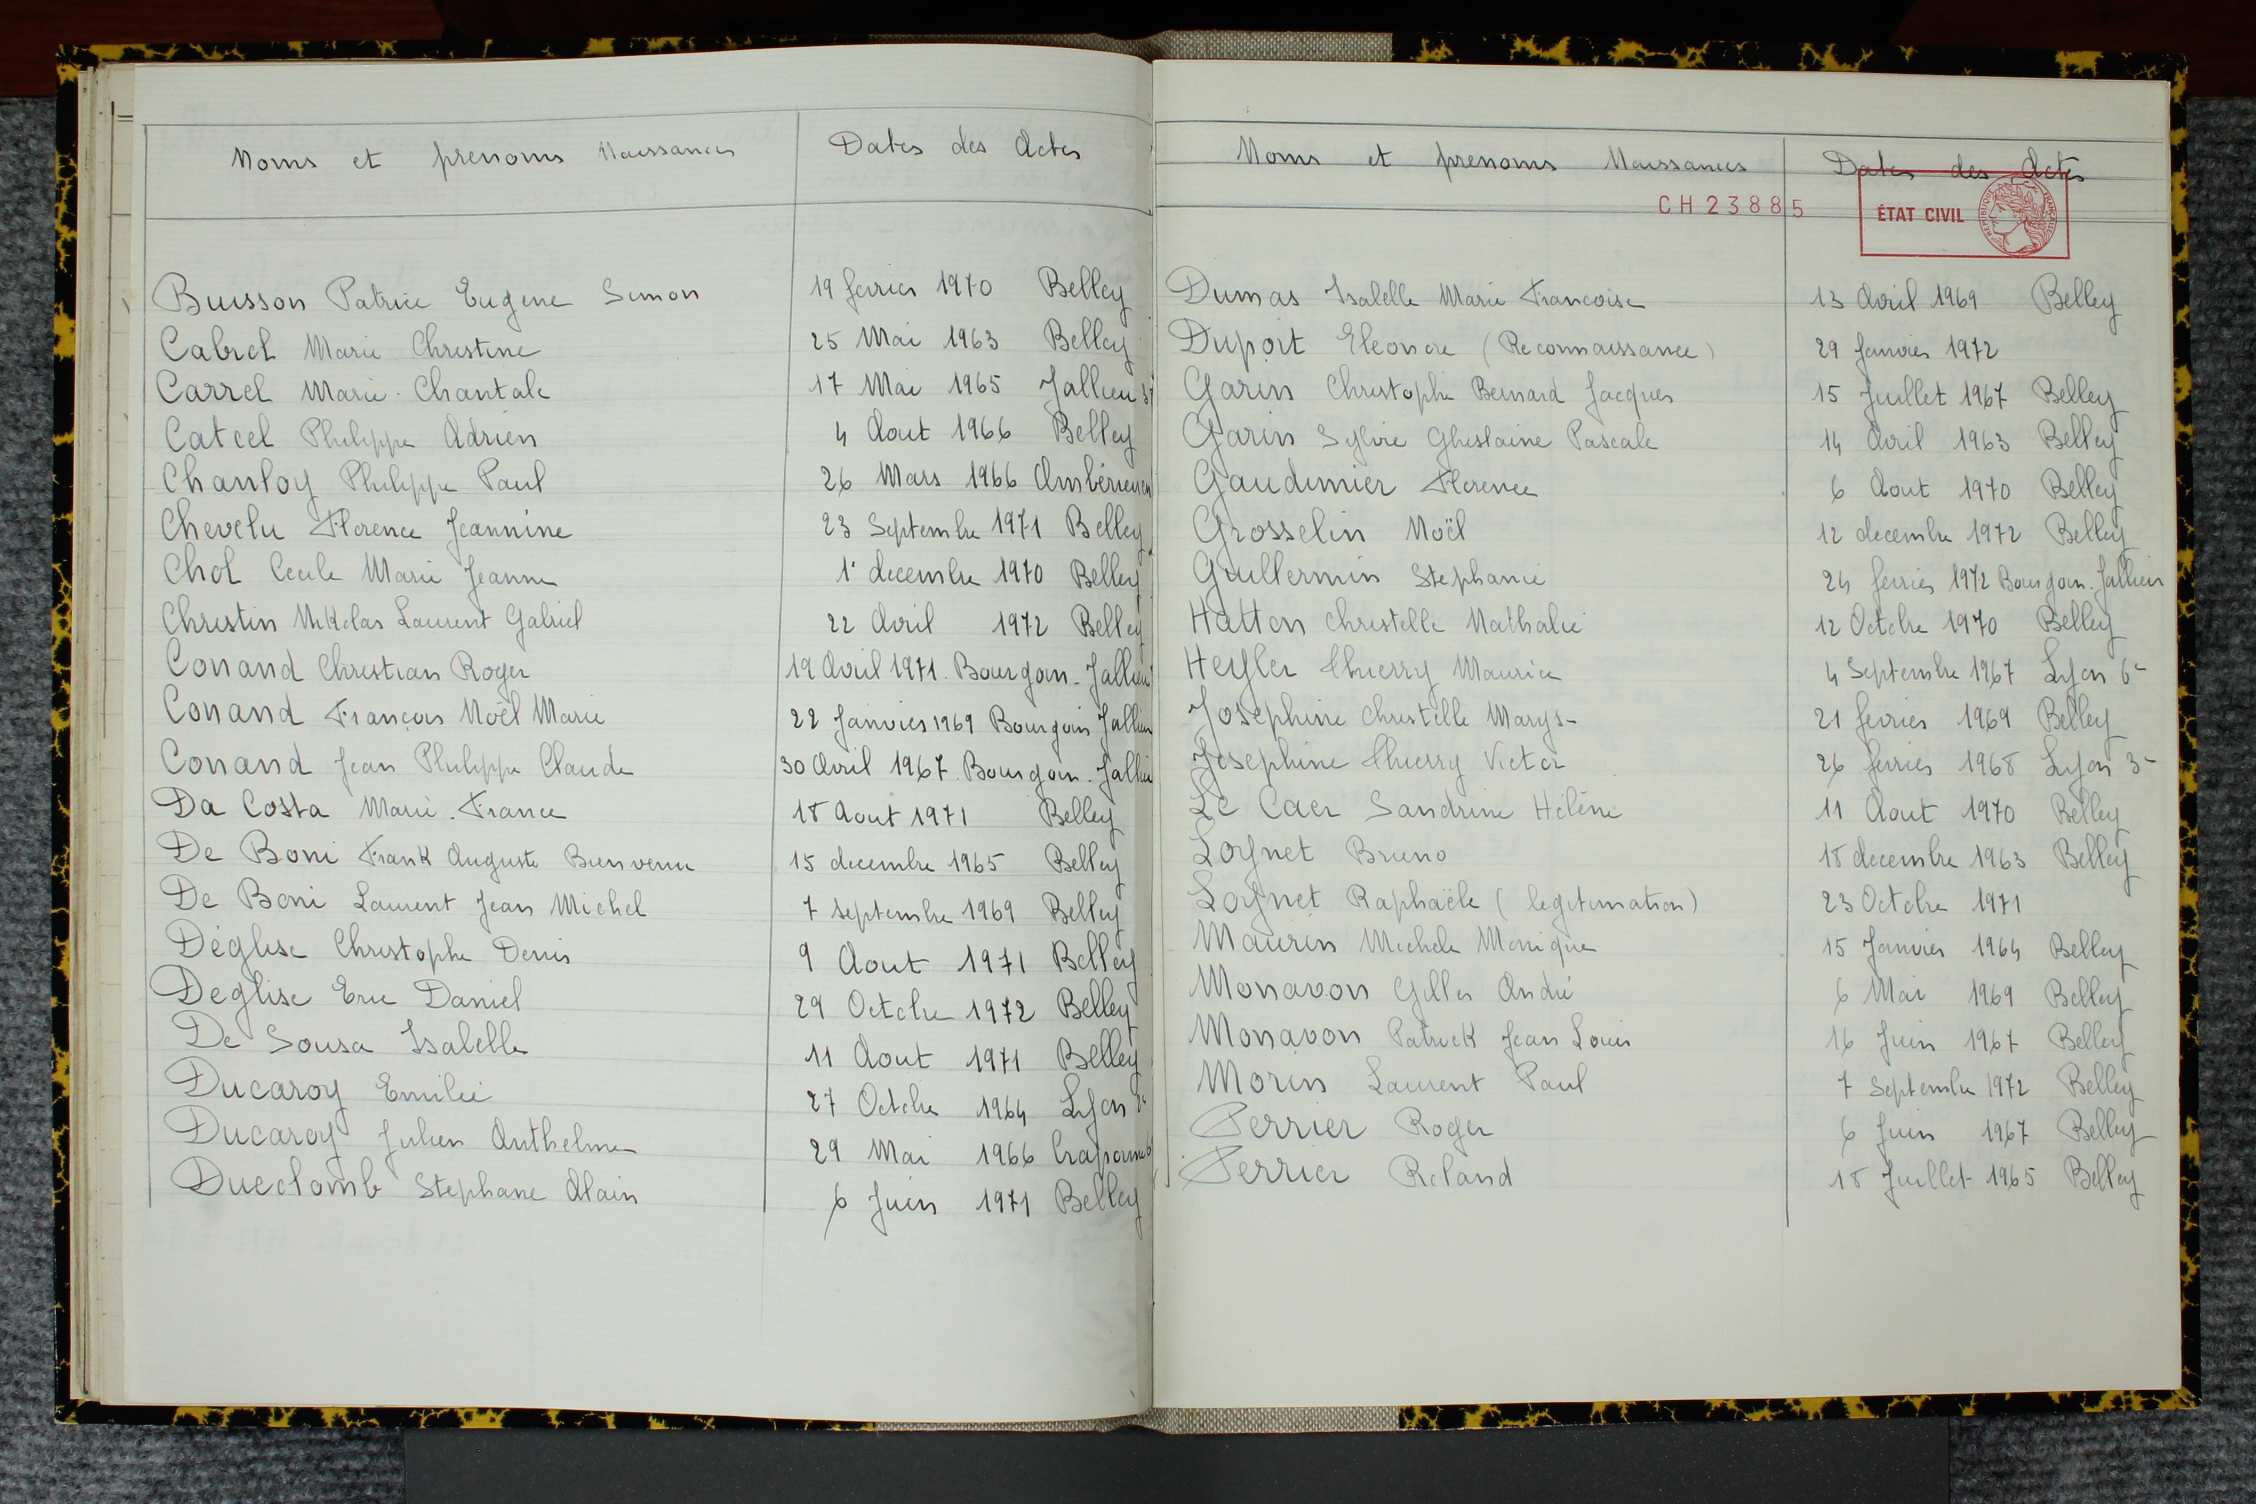 Noms et prenoms Naissances Dates des Actes
Buisson Patrice Eugene Simon 19 fevrier 1970 Belley
Cabrel Marie Christine 25 Mai 1963 Belley
Carrel Marie-Chantale 17 Mai 1965 Jallieu
Catcel Philippe Adrien 4 Aout 1966 Belley
Chanloy Philippe Paul 26 Mars 1966 Ambérieu en
Chevelu Florence Jeannine 23 Septembre 1971 Belley
Chol Cecile Marie Jeanne 1° decembre 1970 Belley
Christin Nikolas Laurent Gabriel 22 Avril 1972 Belley
Conand Christian Roger 19 Avril 1971. Bourgoin-Jallieu
Conand François Noël Marie 22 Janvier 1969 Bourgoin Jallieu
Conand Jean Philippe Claude 30 Avril 1967. Bourgoin-Jallieu
Da Costa Marie-France 18 Aout 1971 Belley
De Boni Frank Auguste Bienvenu 15 decembre 1965 Belley
De Boni Laurent Jean Michel 7 Septembre 1969 Belley
Déglise Christophe Denis 9 Aout 1971 Belley
Deglise Eric Daniel 29 Octobre 1972 Belley
De Sousa Isabelle 11 Aout 1971 Belley
Ducaroy Emilie 27 Octobre 1964 Lyon
Ducaroy Julien Anthelme 29 Mai 1966 Craponne
Dueclomb Stephane Alain 6 Juin 1971 Belley
Noms et prenoms Naissances Dates des Actes
CH23885
ÉTAT CIVIL
RÉPUBLIQUE FRANÇAISE
Dumas Isabelle Marie Francoise 13 Avril 1969 Belley
Duport Eleonore (Reconnaissance) 29 Janvier 1972
Garin Christophe Bernard Jacques 15 Juillet 1967 Belley
Garin Sylvie Ghislaine Pascale 14 Avril 1963 Belley
Gaudimier Florence 6 Aout 1970 Belley
Grosselin Noël 12 decembre 1972 Belley
Guillermin Stephanie 24 fevrier 1972 Bourgoin-Jallieu
Hatton Christelle Nathalie 12 Octobre 1970 Belley
Heyler Thierry Maurice 4 Septembre 1967 Lyon 6e
Josephine Christelle Marys- 21 fevrier 1969 Belley
Josephine Thierry Victor 26 fevrier 1968 Lyon 3e
Le Caer Sandrine Hélène 11 Aout 1970 Belley
Loynet Bruno 18 decembre 1963 Belley
Loynet Raphaële (legitimation) 23 Octobre 1971
Maurin Michele Monique 15 Janvier 1964 Belley
Monavon Gilles André 6 Mai 1969 Belley
Monavon Patrick Jean Louis 16 Juin 1967 Belley
Morin Laurent Paul 7 Septembre 1972 Belley
Perrier Roger 6 Juin 1967 Belley
Perrier Roland 18 Juillet 1965 Belley